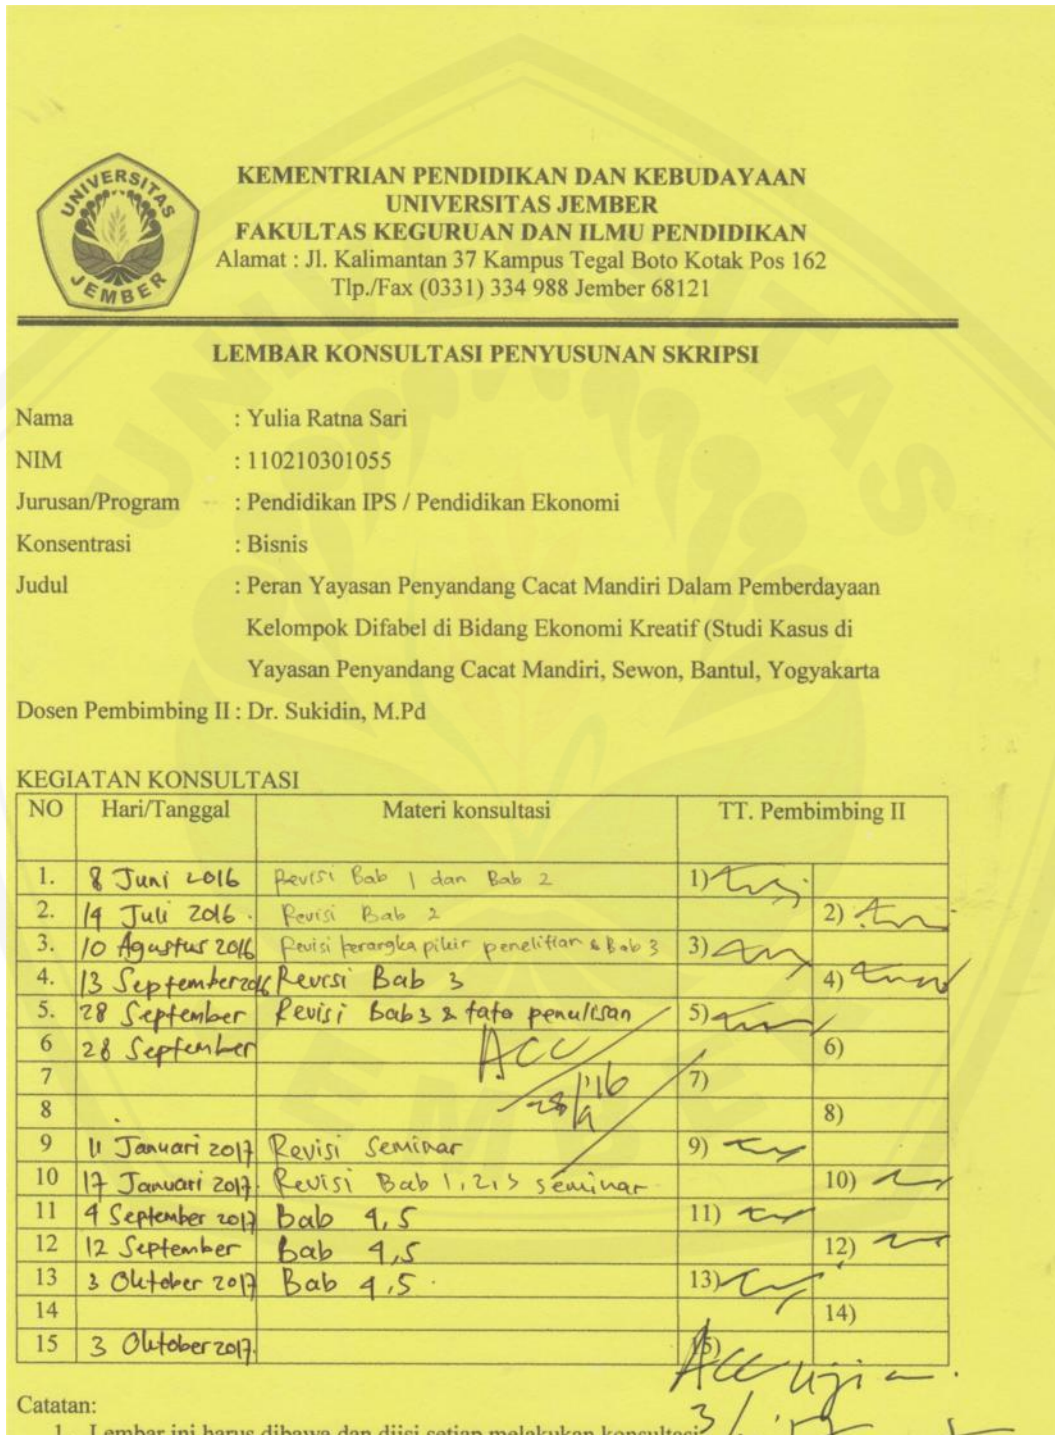 UNIVERSITAS
JEMBER
KEMENTRIAN PENDIDIKAN DAN KEBUDAYAAN
UNIVERSITAS JEMBER
FAKULTAS KEGURUAN DAN ILMU PENDIDIKAN
Alamat : Jl. Kalimantan 37 Kampus Tegal Boto Kotak Pos 162
Tlp./Fax (0331) 334 988 Jember 68121
LEMBAR KONSULTASI PENYUSUNAN SKRIPSI
Nama : Yulia Ratna Sari
NIM : 110210301055
Jurusan/Program : Pendidikan IPS / Pendidikan Ekonomi
Konsentrasi : Bisnis
Judul : Peran Yayasan Penyandang Cacat Mandiri Dalam Pemberdayaan
Kelompok Difabel di Bidang Ekonomi Kreatif (Studi Kasus di
Yayasan Penyandang Cacat Mandiri, Sewon, Bantul, Yogyakarta
Dosen Pembimbing II : Dr. Sukidin, M.Pd
KEGIATAN KONSULTASI
NO Hari/Tanggal Materi konsultasi TT. Pembimbing II
1. 8 Juni 2016 Revisi Bab 1 dan Bab 2 1)
2. 14 Juli 2016. Revisi Bab 2 2)
3. 10 Agustus 2016 Revisi kerangka pikir penelitian & Bab 3 3)
4. 13 September 2016 Revisi Bab 3 4)
5. 28 September Revisi Bab 3 & tata penulisan 5)
6 28 September ACC 6)
7 28/9 '16 7)
8 8)
9 11 Januari 2017 Revisi Seminar 9)
10 17 Januari 2017. Revisi Bab 1, 2, 3 seminar 10)
11 4 September 2017 Bab 4,5 11)
12 12 September Bab 4,5 12)
13 3 Oktober 2017 Bab 4,5. 13)
14 14)
15 3 Oktober 2017. 15)
ACC Ujian.
Catatan:
1. Lembar ini harus dibawa dan diisi setiap melakukan konsultasi